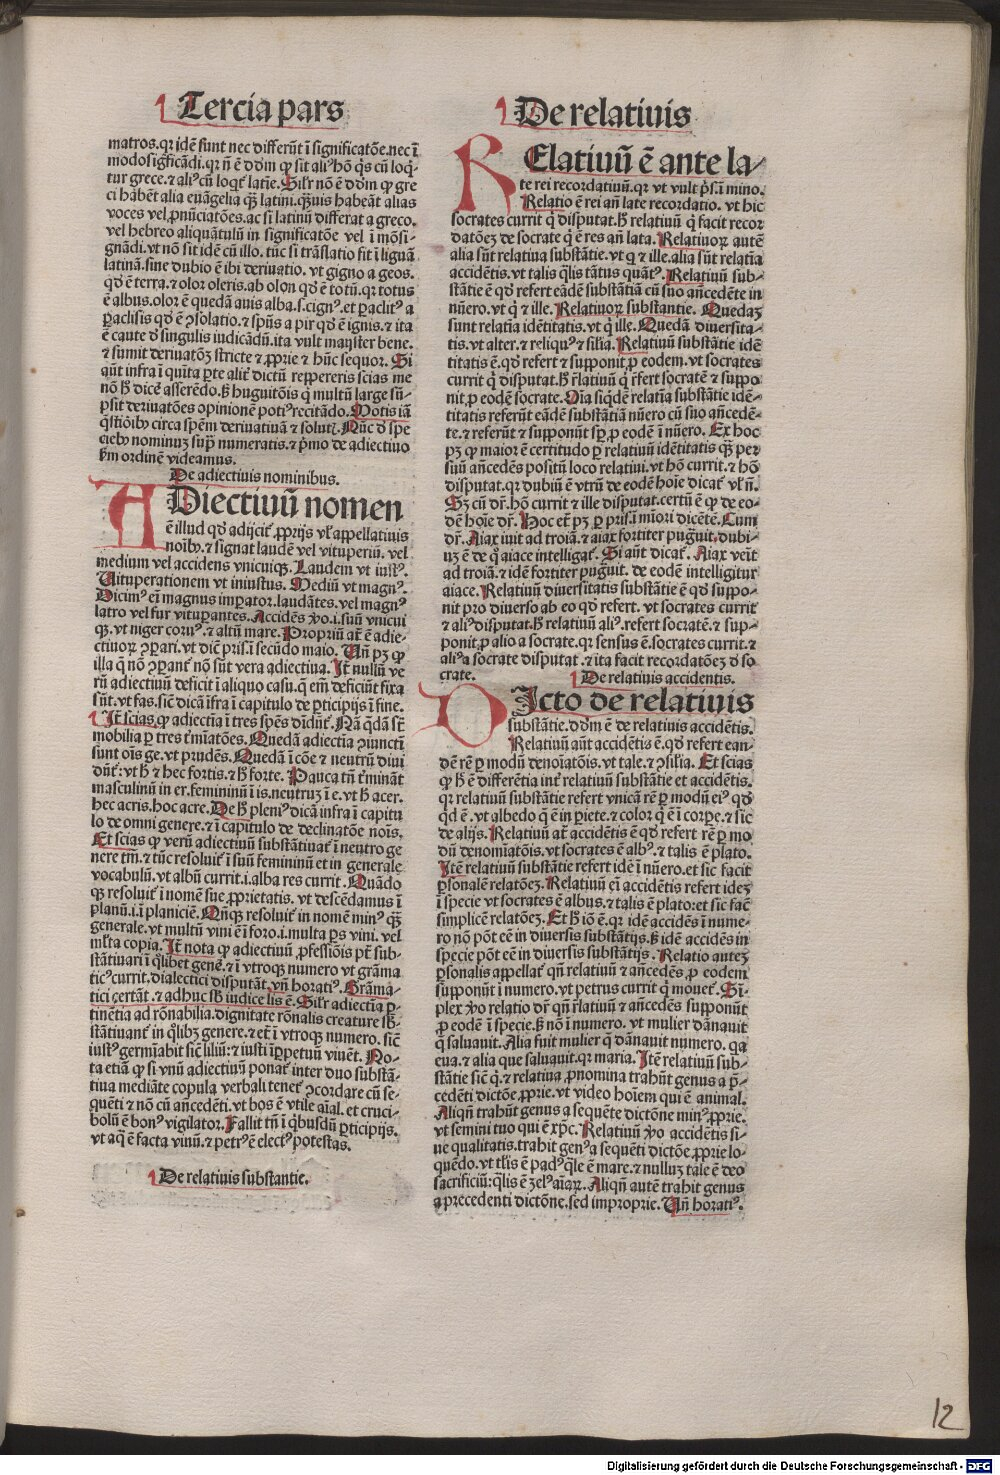 Tercia pars
matros.qꝛ idē sunt nec differūt ī significatōe.nec ī
modo sigficādi.qꝛ nō ē dōm ꝙ sit aliꝰ hō q̇s cū loq̄-
tur grece.⁊ aliꝰ cū loqt̄ latīe.Silr̄ nō ē dōm ꝙ gre
ci habēt alia euāgelia qꝫ̄ latini.qꝫ̄uis habeāt alias
voces vel ꝓnūciatōes.ac si latinū differat a greco.
vel hebreo aliquātulū in significatōe vel ī mōsi-
gnādi.vt nō sit idē cū illo.tūc si trāslatio fit ī liguā
latinā.sine dubio ē ibi deriuatio. vt gigno a geos.
qd̓ ē terra.⁊ olor oleris.ab olon qd̓ ē totū.qꝛ totus
ē albus.olor ē quedā auis alba.s.cignꝰ.⁊ ꝑaclitꝰ a
ꝑaclisis qd̓ ē ꝯsolatio.⁊ spūs a pir qd̓ ē ignis.⁊ ita
ē caute d̓ singulis iudicādū.ita vult mayster bene.
⁊ sumit deriuatōeꝫ stricte ⁊ ꝓprie ⁊ hūc sequor. Si
aūt infra ī quīta ꝑte alit̓ dictū reppereris scias me
nō h̓ dicē asserēdo.sꝫ hugutiōis q̇ multū large sū-
psit deriuatōes opinionē potiꝰ recitādo.Motis iā
q̄stiōibꝰ circa spēm deriuatiuā ⁊ soluti. Nūc d̓ spe
ciebꝰ nominuꝫ supͣ numeratis.⁊ pͥmo de adiectiuo
s̓m ordinē videamus.
De adiectiuis nominibus.
ADiectiuū nomen
ē illud qd̓ adijcit̓ ꝓprijs vl̓ appellatiuis
noib꜀.⁊ signat laudē vel vituperiū. vel
medium vel accidens vnicuiqꝫ. Laudem vt iustꝰ.
Uituperationem vt iniustus. Mediū vt magnꝰ.
Dicimꝰ eī magnus imꝑator.laudātes.vel magnꝰ
latro vel fur vituꝑantes. Accidēs v̓o.i.suū vnicui
qꝫ. vt niger coruꝰ.⁊ altū mare. Propriū at̄ ē adie-
ctiuoꝝ ꝯꝑari.vt dic̄ pris.ī secūdo maio. Uñ pꝫ ꝙ
illa q̄ nō ꝯꝑant̓ nō sūt vera adiectiua. Jt̄ nullū ve
rū adiectiuū deficit ī aliquo casu.q̄ em̄ deficiūt fixa
sūt.vt fas.sic̄ dicā īfra ī capitulo de ꝑticipijs ī fine.
Jt̄ scias ꝙ adiectīa ī tres spēs dīdūt̓. Nā q̄dā st̄
mobilia ꝑ tres t̓mīatōes. Quedā adiectīa ꝯiunctī
sunt oīs ge. vt prudēs. Quedā ī cōe ⁊ neutrū diui
dūt̓: vt h̓ ⁊ hec fortis.⁊ h̓ forte. Pauca tn̄ t̓mināt
masculinū in er.femininū ī is.neutruꝫ ī e. vt h̓ acer.
hec acris.hoc acre. De h̓ pleniꝰ dicā infra ī capitu
lo de omni genere.⁊ ī capitulo de declinatōe nois.
Et scias ꝙ verū adiectiuū substātiuat̓ ī neutro ge
nere tm̄.⁊ tūc resoluit̓ ī suū femininū et in generale
vocabulū. vt albū currit.i.alba res currit. Quādo
qꝫ resoluit̓ ī nomē sue ꝓprietatis. vt descēdamus ī
planū.i.ī planiciē. Qn̄qꝫ resoluit̓ in nomē minꝰ qꝫ̄
generale. vt multū vini ē ī foro.i.multa ꝑs vini. vel
ml̓ta copia. Jt̄ nota ꝙ adiectiuū ꝓfessiōis pt̄ sub-
stātiuari ī q̇libet genē.⁊ ī vtroqꝫ numero vt grāma
ticꝰ currit.dialectici disputāt. vñ horatiꝰ. Grāma-
tici certāt.⁊ adhuc sb̓ iudice lis ē. Silr̄ adiectīa ꝑ-
tinētia ad rōnabilia.dignitate rōnalis creature sb̓-
stātiuant̓ in q̇libꝫ genere.⁊ et̄ ī vtroqꝫ numero. sic̄
iustꝰ germīabit sic̄ liliū:⁊ iusti īꝑpetuū viuēt. No-
ta etiā ꝙ si vnū adiectiuū ponat̓ inter duo substā-
tiua mediāte copula verbali tenet̓ ꝯcordare cū se-
quēti ⁊ nō cū añcedēti.vt bos ē vtile aīal. et cruci-
bolū ē bonꝰ vigilator. Fallit tn̄ ī q̇busdū ꝑticipijs.
vt aq̄ ē facta vinū.⁊ petrꝰ ē electꝰ potestas.
De relatiuis substantie.
De relatiuis
RElatiuū ē ante la-
te rei recordatiuū.qꝛ vt vult pͥs.ī mino.
Relatio ē rei añ late recordatio. vt hic
socrates currit q̇ disputat.h̓ relatiuū q̇ facit recor
datōeꝫ de socrate q̇ ē res añ lata. Relatiuoꝝ autē
alia sūt relatiua substātie.vt q̇ ⁊ ille.alia sūt relatīa
accidētis.vt talis q̄lis tātus quātꝰ. Relatiuū sub-
stātie ē qd̓ refert eādē substātiā cū suo añcedēte in
nūero. vt q̇ ⁊ ille. Relatiuoꝝ substantie. Quedaꝫ
sunt relatīa idētitatis.vt q̇ ille. Quedā diuersita-
tis.vt alter.⁊ reliquꝰ ⁊ silīa. Relatiuū substātie idē
titatis ē.qd̓ refert ⁊ supponit ꝓ eodem.vt socrates
currit q̇ disputat.h̓ r̄latiuū q̇ r̄fert socratē ⁊ suppo
nit ꝓ eodē socrate. Oīa siq̇dē relatīa substātie idē-
titatis referūt eādē substātiā nūero cū suo añcedē-
te.⁊ referūt ⁊ supponūt sꝑ ꝓ eodē ī nūero. Ex hoc
pꝫ ꝙ maior ē certitudo ꝑ relatiuū idētitatis qꝫ̄ per
suū añcedēs positū loco relatiui.vt hō currit.⁊ hō
disputat.qꝛ dubiū ē vtrū de eodē hoīe dicat̓ vl̓ nō.
Sꝫ cū dr̄.hō currit ⁊ ille disputat.certū ē ꝙ de eo-
dē hoīe dr̄. Hoc et̄ pꝫ ꝑ prisꝰ.ī mīori dicētē.Cum
dr̄. Aiax iuit ad troiā.⁊ aiax fortiter pug̃uit.dubi-
uꝫ ē de q̇ aiace intelligat̓. Si aūt dicat̓. Aiax veīt
ad troiā.⁊ idē fortiter pug̃uit. de eodē intelligitur
aiace. Relatiuū diuersitatis substātie ē qd̓ suppo-
nit pro diuerso ab eo qd̓ refert. vt socrates currit
⁊ aliꝰ disputat.h̓ relatiuū aliꝰ.refert socratē.⁊ sup-
ponit ꝓ alio a socrate.qꝛ sensus ē.socrates currit.⁊
aliꝰ a socrate disputat .⁊ ita facit recordatōeꝫ d̓ so
crate.
De relatiuis accidentis.
DIcto de relatiuis
substātie.dōm ē de relatiuis accidētis.
Relatiuū aūt accidētis ē.qd̓ refert ean-
dē rē ꝑ modū denoīatōis.vt tale.⁊ ꝯsilia. Et scias
ꝙ h̓ ē differētia int̓ relatiuū substātie et accidētis.
qꝛ relatiuū substātie refert vnicā rē ꝑ modū eiꝰ qd̓
qd̓ ē .vt albedo q̄ ē in ꝑiete.⁊ color q̄ ē ī corꝑe.⁊ sic
de alijs. Relatiuū at̄ accidētis ē qd̓ refert rē ꝑ mo
dū denomīatōis.vt socrates ē albꝰ.⁊ talis ē plato.
Jtē relatiuū substātie refert idē ī nūero.et sic facit
ꝑsonalē relatōeꝫ. Relatiuū eī accidētis refert ideꝫ
ī specie vt socrates ē albus.⁊ talis ē plato:et sic fac̄
simplicē relatōeꝫ. Et h̓ iō ē.qꝛ idē accidēs ī nume-
ro nō pōt eē in diuersis substātijs.sꝫ idē accidēs in
specie pōt eē in diuersis substātijs. Relatio auteꝫ
ꝑsonalis appellat̓ qn̄ relatiuū ⁊ añcedēs ꝓ eodem
supponūt ī numero. vt petrus currit q̇ mouet̓. Si-
plex v̓o relatio dr̄ qn̄ r̄latiuū ⁊ añcedēs supponūt
ꝓ eodē ī specie.sꝫ nō ī numero. vt mulier dānauit
q̄ saluauit. Alia fuit mulier q̄ dānauit numero. qꝛ
eua.⁊ alia que saluauit.qꝛ maria. Jtē relatiuū sub-
stātie sic̄ q̇.⁊ relatiua ꝓnomina trahūt genus a p̄-
cedēti dictōe ꝓprie. vt video hoīem qui ē animal.
Aliqn̄ trahūt genus a sequēte dictōne minꝰ ꝓprie.
vt semini tuo qui ē xp̄c. Relatiuū v̓o accidētis si-
ue qualitatis.trahit genꝰ a sequēti dictōe ꝓprie lo-
quēdo.vt tl̓is ē padꝰ q̄le ē mare.⁊ nulluꝫ tale ē deo
sacrificiū:q̄lis ē zelꝰ aīaꝝ. Aliqn̄ autē trahit genus
a precedenti dictōne.sed improprie. Uñ horatiꝰ.
12
Digitalisierung gefördert durch die Deutsche Forschungsgemeinschaft - DFG